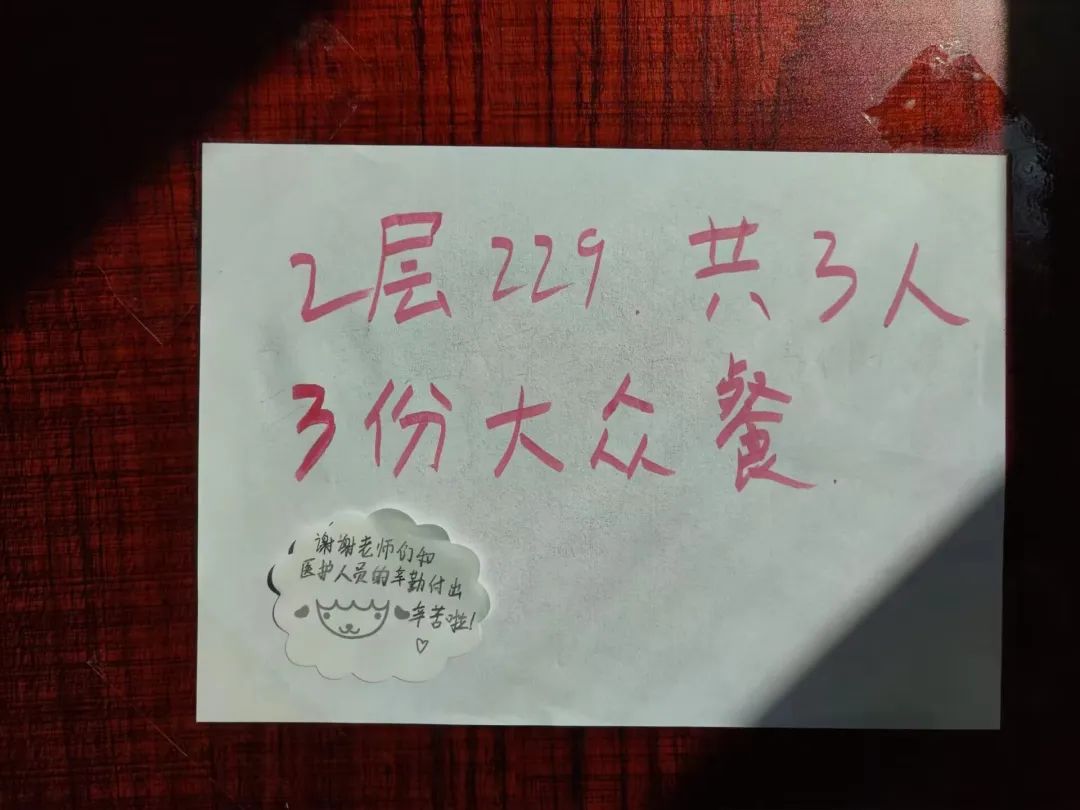 2层 229. 共3人
3份大众餐.
谢谢老师们和
医护人员的辛勤付出
辛苦啦!
♡